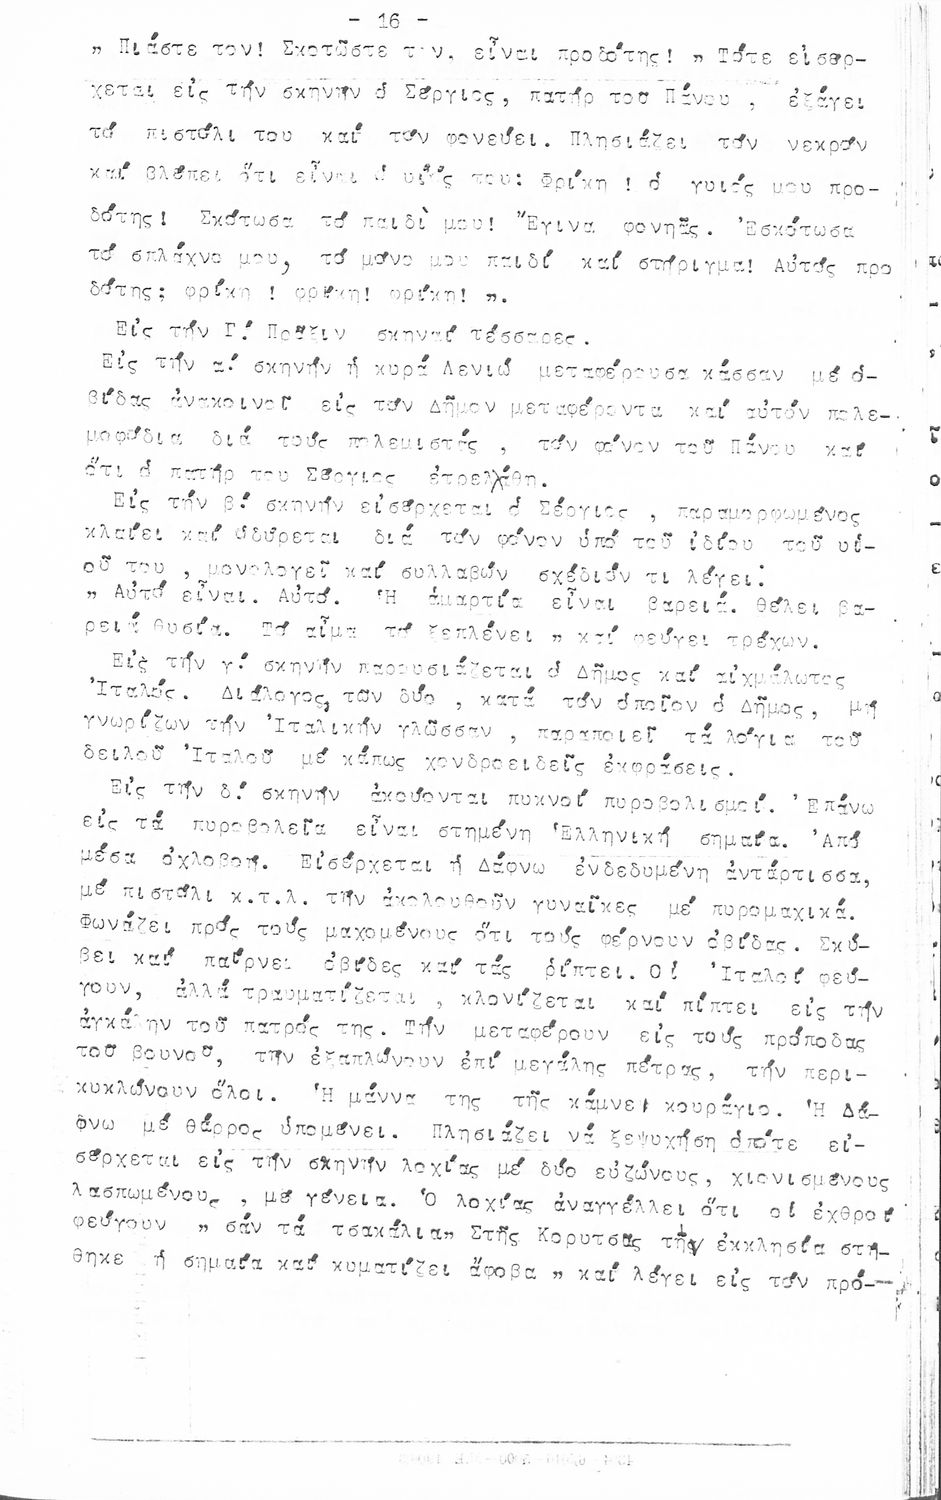 - 16 -
„ Πιάστε τον! Σκοτῶστε τον, εἶναι προδότης! „ Τότε εἰσέρ-
χεται εἰς τήν σκηνήν ὁ Σέργιος, πατήρ τοῦ Πάνου , ἐξάγει
τό πιστόλι του καί τόν φονεύει. Πλησιάζει τόν νεκρόν
καί βλέπει ὅτι εἶναι ὁ υἱός του: Φρίκη ! ὁ γυιός μου προ-
δότης! Σκότωσα τό παιδὶ μου! Ἔγινα φονηᾶς. Ἐσκότωσα
τό σπλάχνο μου, τό μόνο μου παιδί καί στήριγμα! Αὐτός προ
δότης; φρίκη ! φρίκη! φρίκη! „.
Εἰς τήν Γ.΄ Πράξιν σκηναί τέσσαρες.
Εἰς τήν α.΄ σκηνήν ἡ κυρά Λενιώ μεταφέρουσα κάσσαν μέ ὀ-
βίδας ἀνακοινοῖ εἰς τόν Δῆμον μεταφέροντα καί αὐτόν πολε-
μοφόδια διά τούς πολεμιστάς , τόν φόνον τοῦ Πάνου καί
ὅτι ὁ πατήρ του Σέργιος ἐτρελλάθη.
Εἰς τήν β.΄ σκηνήν εἰσέρχεται ὁ Σέργιος , παραμορφωμένος
κλαίει καί ὀδύρεται διά τόν φόνον ὑπό τοῦ ἰδίου τοῦ υἱ-
οῦ του , μονολογεῖ καί συλλαβών σχέδιόν τι λέγει:
„ Αὐτό εἶναι. Αὐτό. Ἡ ἁμαρτία εἶναι βαρειά. θέλει βα-
ρειά θυσία. Τό αἷμα τό ξεπλένει „ καί φεύγει τρέχων.
Εἰς τήν γ.΄ σκηνήν παρουσιάζεται ὁ Δῆμος καί αἰχμάλωτος
Ἰταλός. Διάλογος, τῶν δύο , κατά τόν ὁποῖον ὁ Δῆμος, μή
γνωρίζων τήν Ἰταλικήν γλῶσσαν , παραποιεῖ τά λόγια τοῦ
δειλοῦ Ἰταλοῦ μέ κάπως χονδροειδεῖς ἐκφράσεις.
Εἰς τήν δ.΄ σκηνήν ἀκούονται πυκνοί πυροβολισμοί. Ἐπάνω
εἰς τά πυροβολεῖα εἶναι στημένη Ἑλληνική σημαία. Ἀπό
μέσα ὀχλοβοή. Εἰσέρχεται ἡ Δάφνω ἐνδεδυμένη ἀντάρτισσα,
μέ πιστόλι κ.τ.λ. τήν ἀκολουθοῦν γυναῖκες μέ πυρομαχικά.
Φωνάζει πρός τούς μαχομένους ὅτι τούς φέρνουν ὀβίδας. Σκύ-
βει καί παίρνει ὀβίδες καί τάς ρίπτει. Οἱ Ἰταλοί φεύ-
γουν, ἀλλά τραυματίζεται , κλονίζεται καί πίπτει εἰς τήν
ἀγκάλην τοῦ πατρός της. Τήν μεταφέρουν εἰς τούς πρόποδας
τοῦ βουνοῦ, τήν ἐξαπλώνουν ἐπί μεγάλης πέτρας, τήν περι-
κυκλώνουν ὅλοι. Ἡ μάννα της τῆς κάμνει κουράγιο. Ἡ Δά-
φνω μέ θάρρος ὑπομένει. Πλησιάζει νά ξεψυχήση ὁπότε εἰ-
σέρχεται εἰς τήν σκηνήν λοχίας μέ δύο εὐζώνους, χιονισμένους
λασπωμένους , μέ γένεια. Ὁ λοχίας ἀναγγέλλει ὅτι οἱ ἐχθροί
φεύγουν „ σάν τά τσακάλια„ Στῆς Κορυτσᾶς τήν ἐκκλησία στή-
θηκε ἡ σημαία καί κυματίζει ἄφοβα „ καί λέγει εἰς τόν πρό-